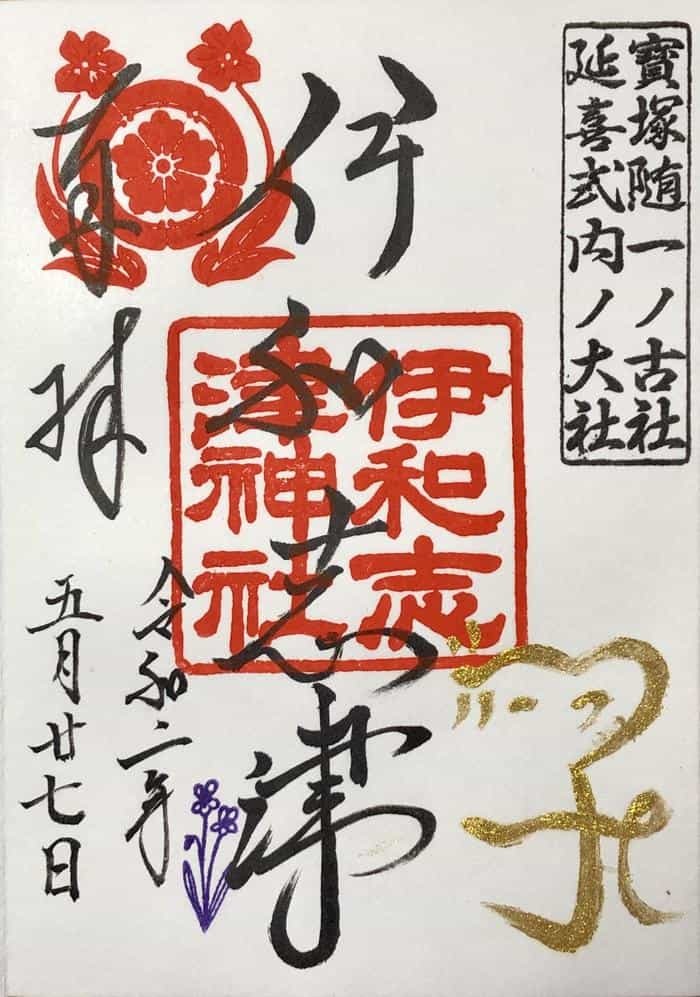 寶塚随一ノ古社
延喜式内ノ大社
伊和志津
伊和志
津神社
奉拝
令和二年
五月廿七日